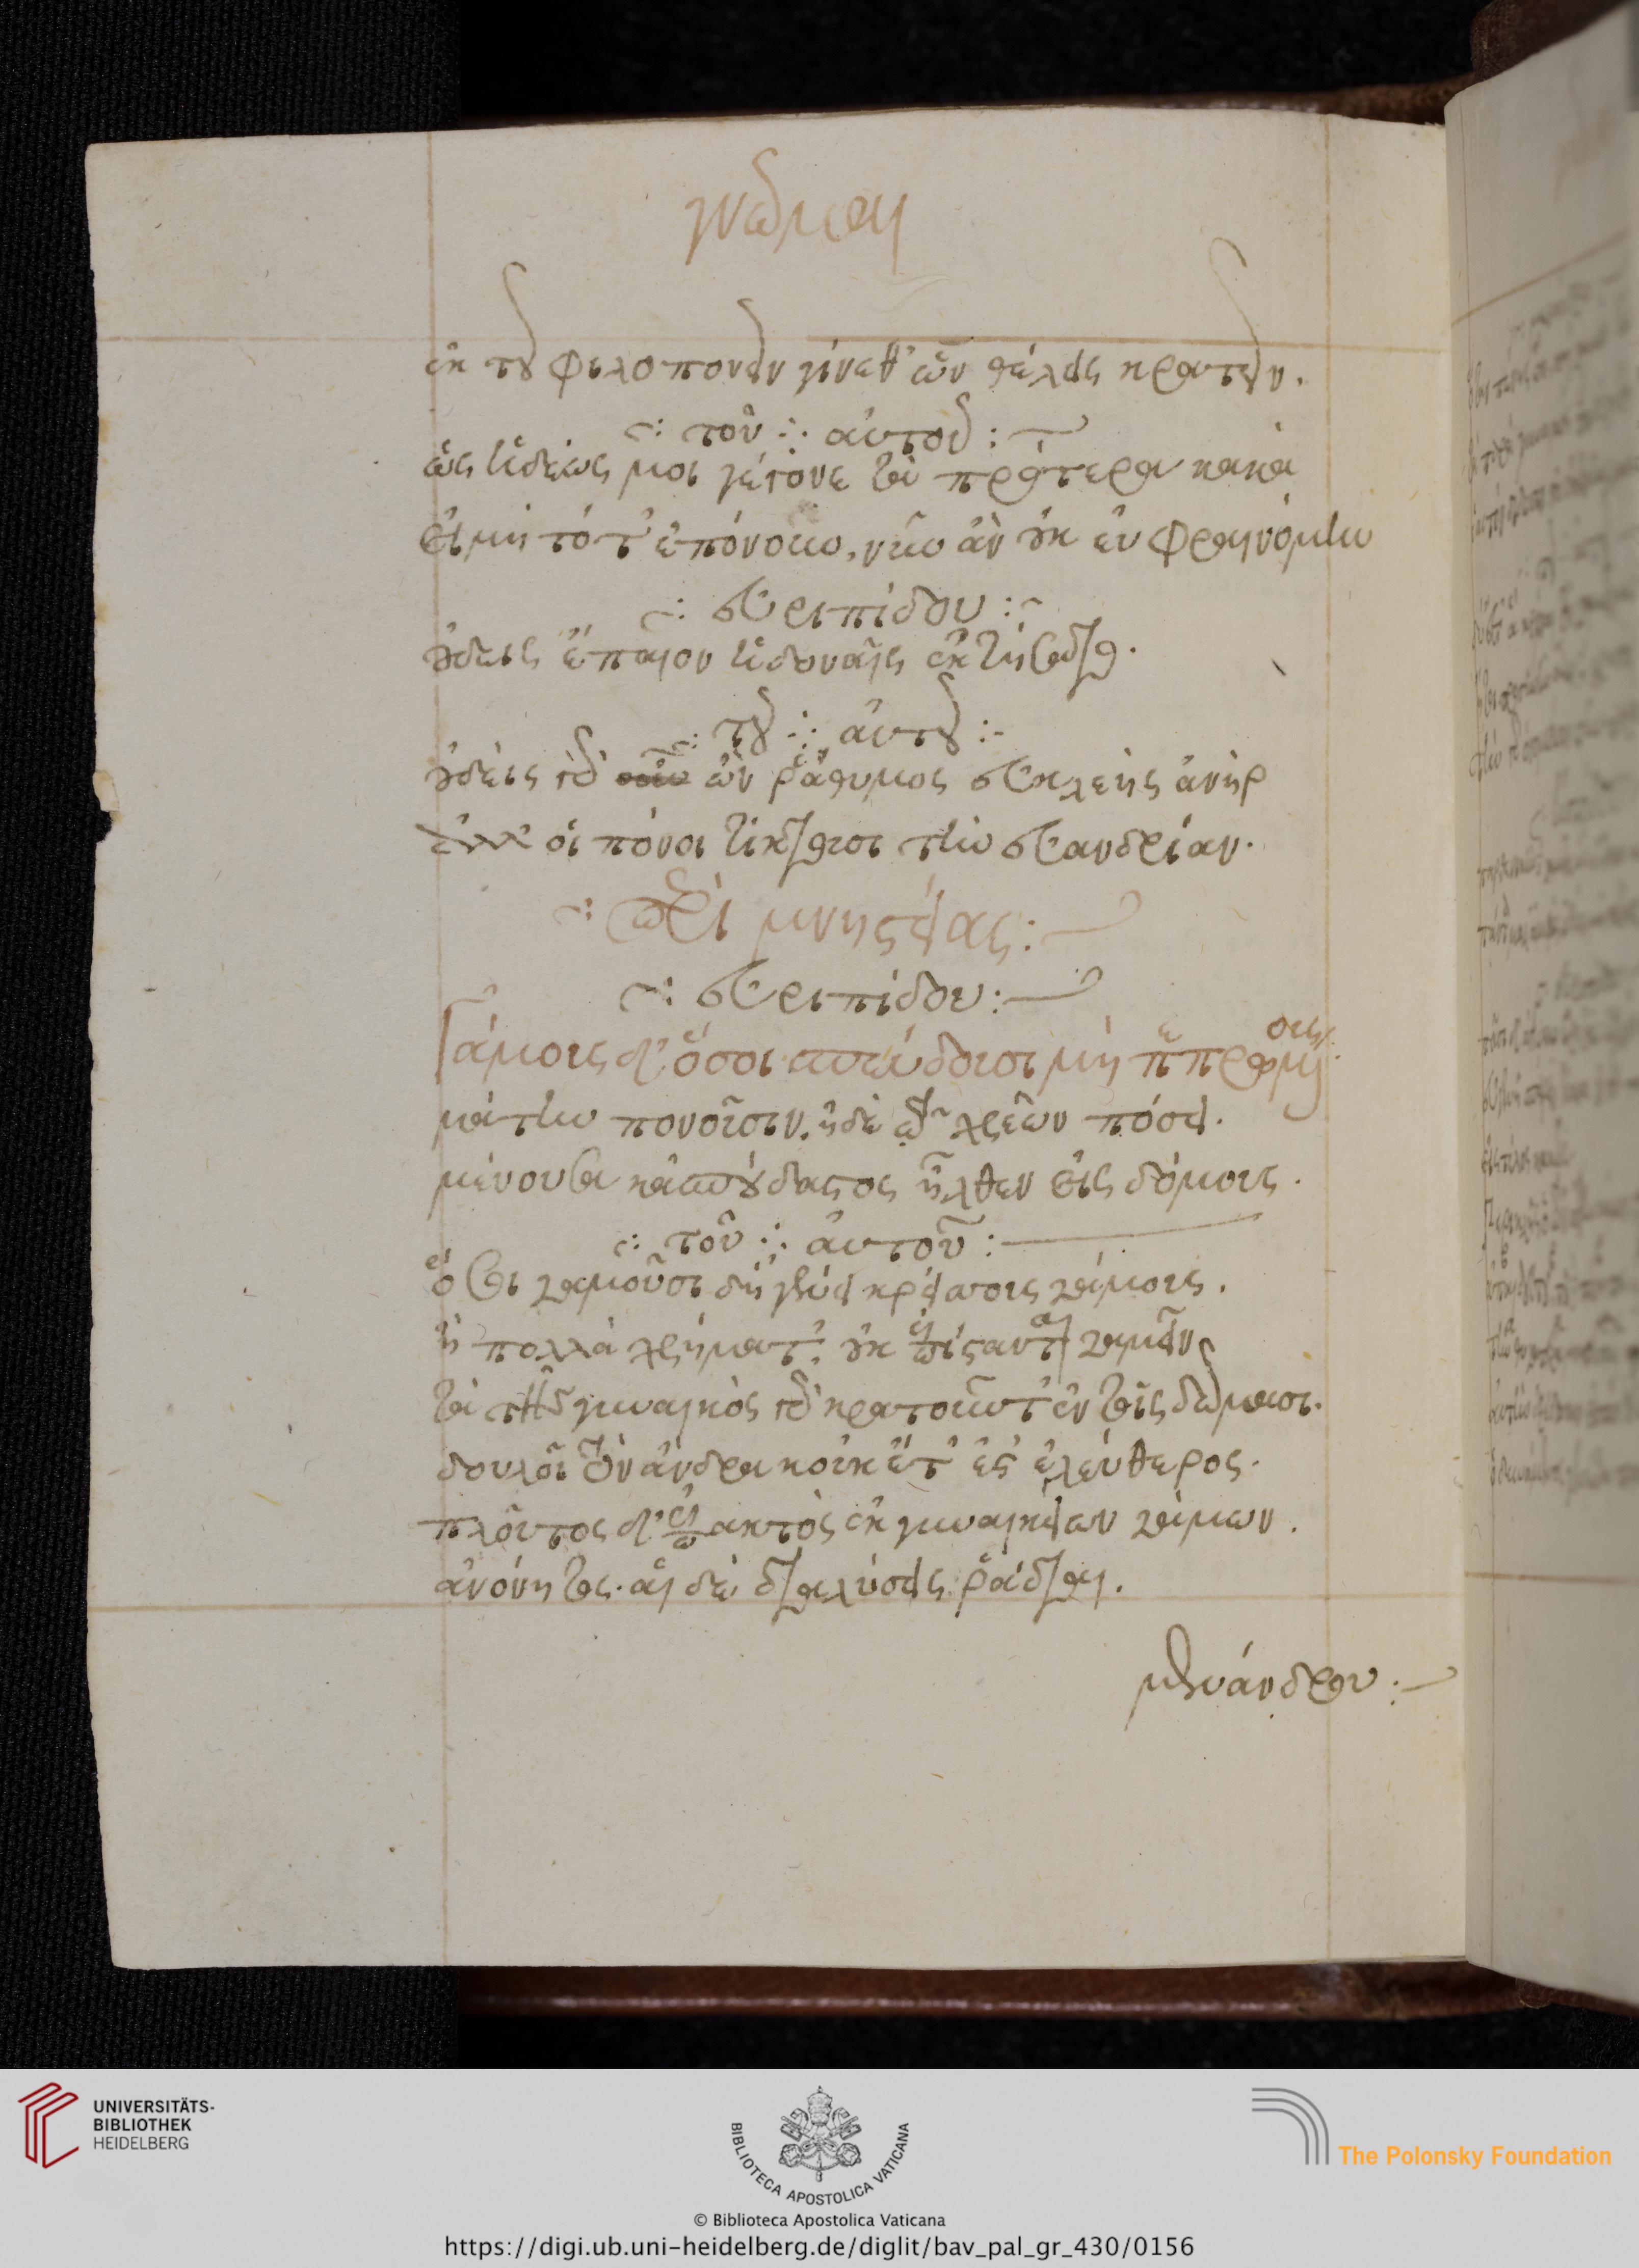 γνῶμαι
ἐκ τοῦ φιλοπονεῖν γίνεθ' ὧν θέλεις κρατεῖν.
τοῦ αὐτοῦ
ὡς ἡδέως μοι γέγονε τὰ πρότερα κακά
εἰ μὴ τότ' ἐπόνουν, νῦν ἂν οὐκ εὐφραινόμην
εὐριπίδου
οὐδεὶς ἔπαινον ἡδοναῖς ἐκτήσατο.
τοῦ αὐτοῦ
οὐδεὶς γὰρ ὢν ῥάθυμος εὐκλεὴς ἀνὴρ
ἀλλ' οἱ πόνοι τίκτουσι τὴν εὐανδρίαν.
περὶ μνηστείας
εὐριπίδου
Γάμους δ' ὅσοι σπεύδουσι μὴ πεπρωμένους
μάτην πονοῦσιν. ἡ δὲ τῷ χρεὼν πόσει.
μένουσα κἀσπούδαστος ἦλθεν εἰς δόμους.
τοῦ αὐτοῦ
ὅσοι γαμοῦσι δὴ γένει κρείσσους γάμους.
ἢ πολλὰ χρήματ'. οὐκ ἐπίστανται γαμεῖν
τὰ τῆς γυναικὸς γὰρ κρατοῦντ' ἐν τοῖς δώμασι.
δουλοῖ τὸν ἄνδρα κοὐκέτ' ἔστ' ἐλεύθερος.
πλοῦτος δ' ἐπακτὸς ἐκ γυναικείων γάμων.
ἀνόνητος. αἱ δὲ διαλύσεις ῥᾴδιαι.
μενάνδρου
UNIVERSITÄTS-
BIBLIOTHEK
HEIDELBERG
BIBLIOTECA APOSTOLICA VATICANA
The Polonsky Foundation
© Biblioteca Apostolica Vaticana
https://digi.ub.uni-heidelberg.de/diglit/bav_pal_gr_430/0156